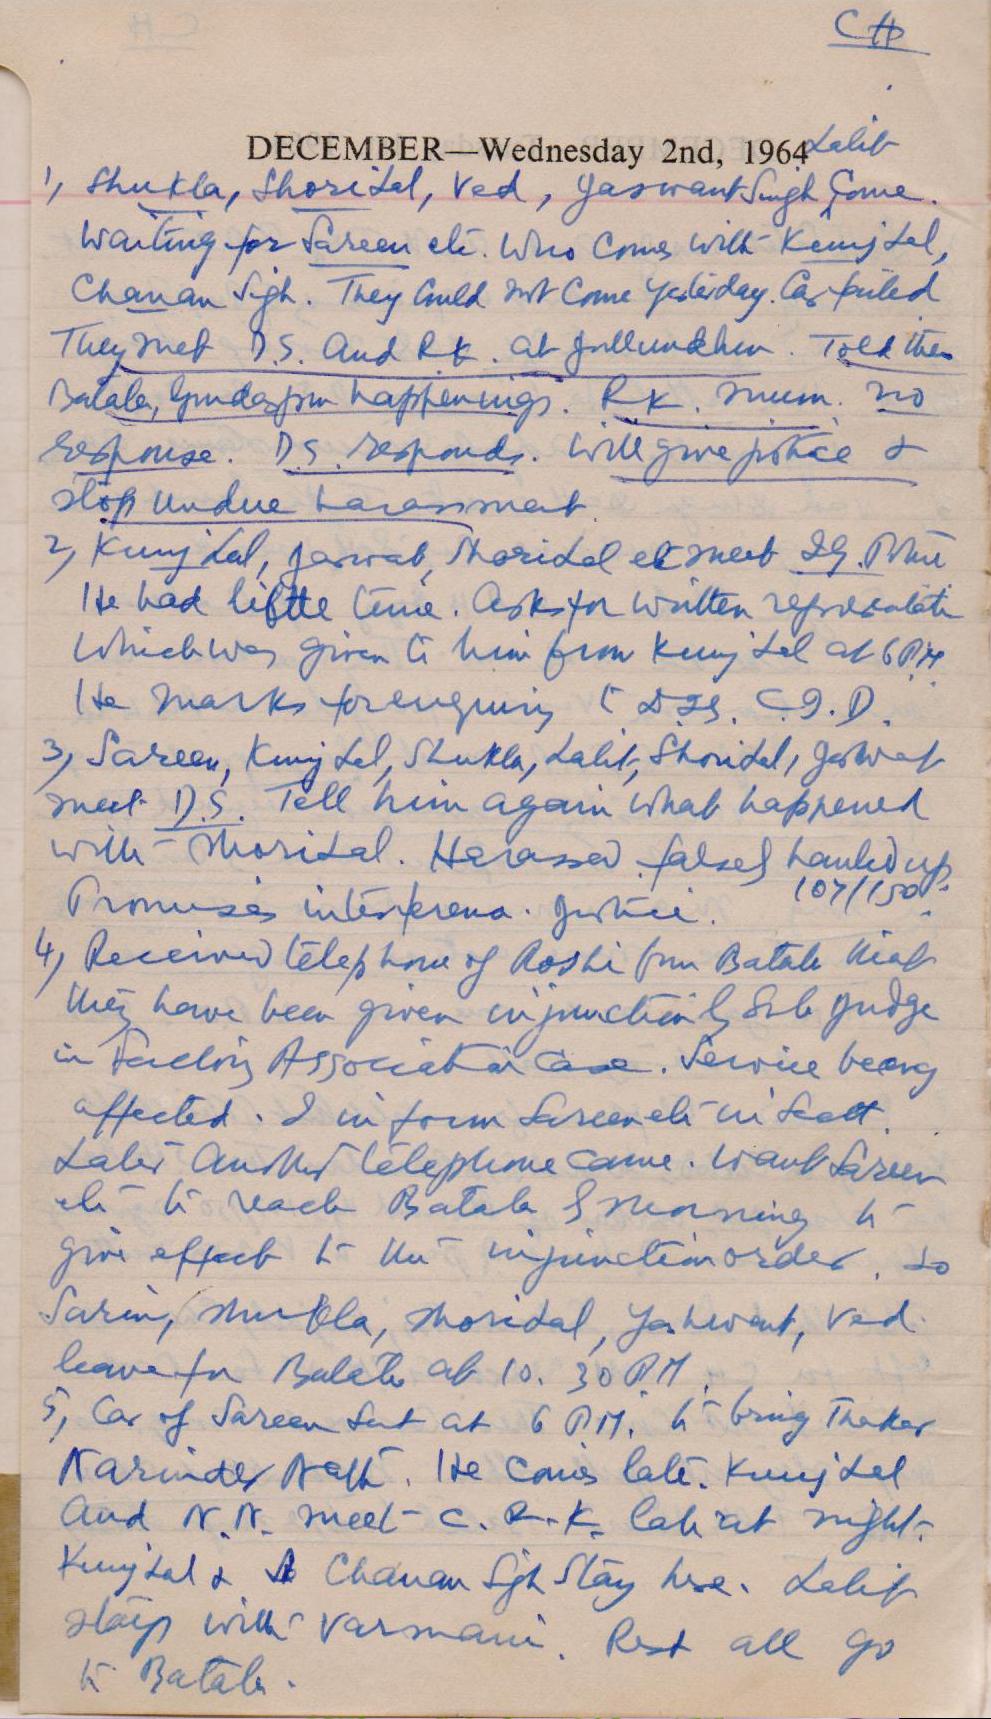 CH
DECEMBER—Wednesday 2nd, 1964
Lalit
1, Shukla, Shorilal, Ved, Jaswant Singh Come.
Waiting for Sareen etc. Who Comes with Kunjlal,
Chanan Sigh. They Could not Come Yesterday. Car failed
They met D.S. And R.K. at Jullundhur. Told them
Batala, Gurdaspur happenings. R.K. mum. no
response. D.S. responds. Will give justice &
stop undue harassment.
2, Kunjlal, Jaswat, Shorilal etc meet IG. Police
He had little time. Asks for written representation
Which was given to him from Kunjlal at 6 P.M.
He marks for enquiry to D.I.G. C.I.D.
3, Sareen, Kunjlal, Shukla, Lalit, Shorilal, Jaswat
meet D.S. Tell him again what happened
with Shorilal. Harassed falsely hauled up
107/150.
Promises interference. Justice.
4, Received telephone of Roshi from Batala that
they have been given injunction by Sub Judge
in Factory Association Case. Service being
affected. I inform Sareen etc in Sectt.
Later Another telephone came. Want Sareen
etc to reach Batala by morning to
give effect to the injunction order. So
Sarin, Shukla, Shorilal, Yashwant, Ved
leave for Batala at 10.30 P.M.
5, Car of Sareen Sent at 6 P.M. to bring Thaker
Narinder Nath. He comes late. Kunjlal
And N.N. meet C.R.K. late at night.
Kunjlal & Chanan Sgh Stay here. Lalit
stays with Varmani. Rest all go
to Batala.